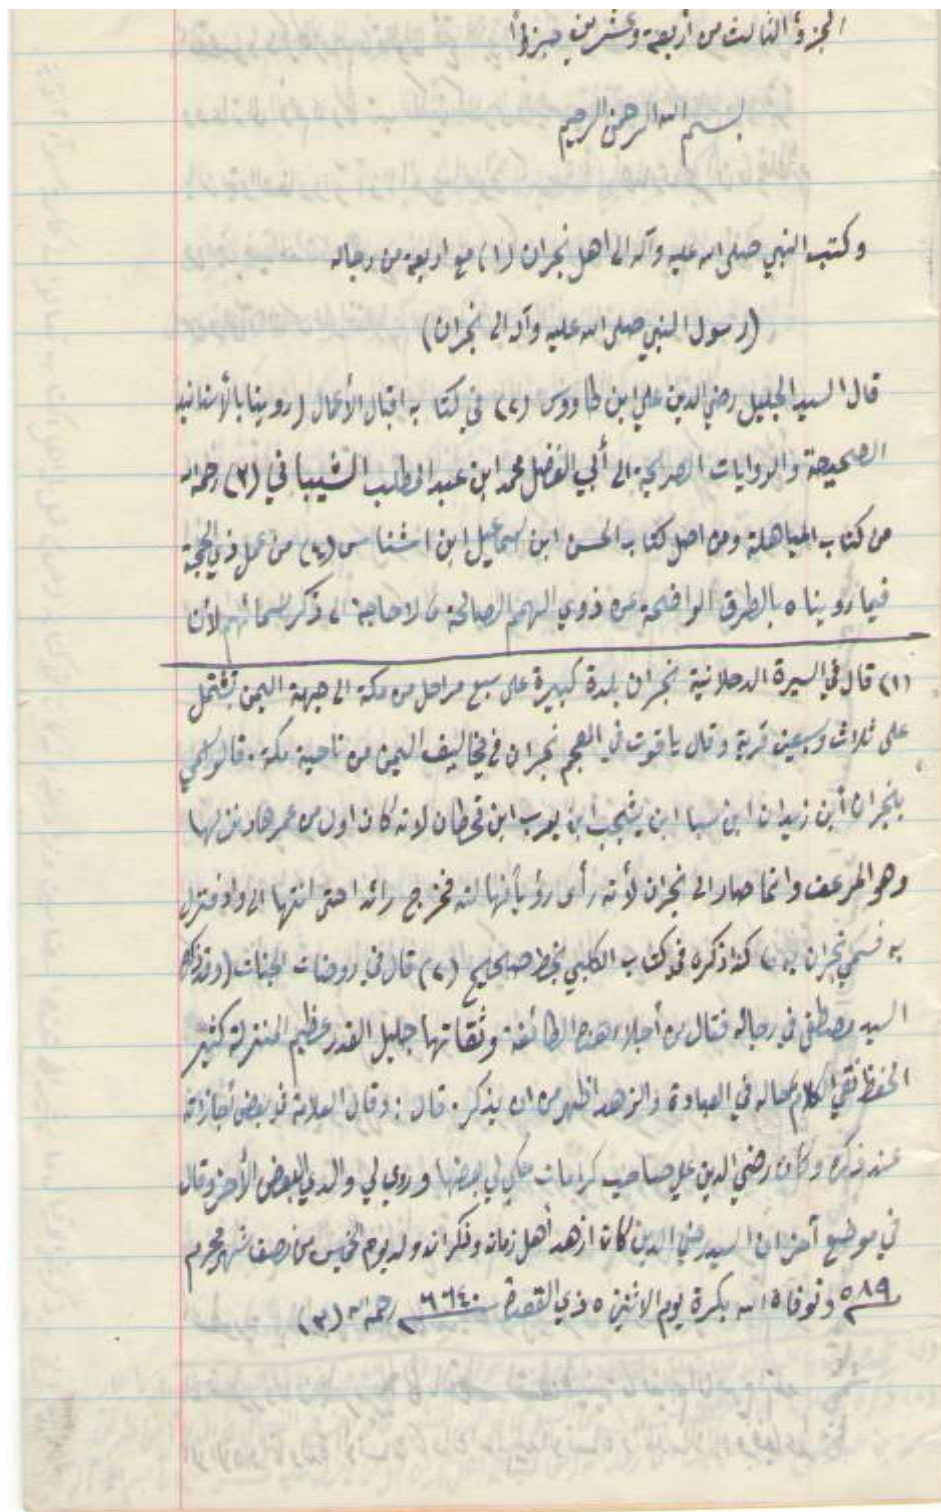 الجزؤ الثالث من أربعة وعشرين جزؤاً
بسم الله الرحمن الرحيم
وكتب النبي صلى الله عليه وآله الى اهل نجران (١) مع اربعة من رجاله
(رسول النبي صلى الله عليه وآله الى نجران)
قال السيد الجليل رضي الدين علي ابن طاووس (٢) في كتابه اقبال الأعمال (روينا بالأسانيد
الصحيحة والروايات الصريحة الى أبي الفضل محمد ابن عبد المطلب الشيباني (٣) رحمه الله
من كتاب المباهلة ومن اصل كتاب الحسن ابن اسماعيل ابن اشناس (٤) من عمل ذي الحجة
فيما رويناه بالطرق الواضحة عن ذوي الهمم الصالحة لا حاجة الى ذكر اسمائهم لأن
(١) قال في السيرة الدحلانية نجران بلدة كبيرة على سبع مراحل من مكة الى جهة اليمن تشتمل
على ثلاث وسبعين قرية وقال ياقوت في المعجم نجران في مخاليف اليمن من ناحية مكة. قالوا سمي
بنجران أبن زيدان ابن سبا ابن يشجب ابن يعرب ابن قحطان لانه كان اول من عمرها ونزلها
وهو المرعف وانما صار الى نجران لأنه رأى رؤيا فهالته فخرج رائداً حتى انتهى الى واد فنزل
به فسمي نجران به كذا ذكره في كتاب الكلبي بخط صحيح (٢) قال في روضات الجنات (وقد ذكره
السيد مصطفى في رجاله فقال من أجلاء هذه الطائفة وثقاتها جليل القدر عظيم المنزلة كثير
الحفظ نقي الكلام حاله في العبادة والزهد اظهر من ان يذكر. قال: وقال العلامة في بعض أجازاته
عند ذكره وكان رضي الدين علي صاحب كرامات حكي لي بعضها وروى لي والدي البعض الأخر وقال
في موضع آخر ان السيد رضي الدين كان ازهد أهل زمانه وولد يوم الخميس من نصف شهر محرم
٥٨٩ وتوفاه الله بكرة يوم الاثنين ٥ ذي القعدة رحمه الله (٣)